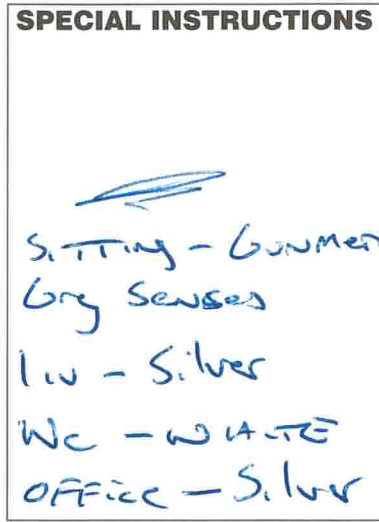 SPECIAL INSTRUCTIONS
SiTTing - GUNMET
Grey Senses
Liv - Silver
Wc - WHiTE
OFFice - Silver